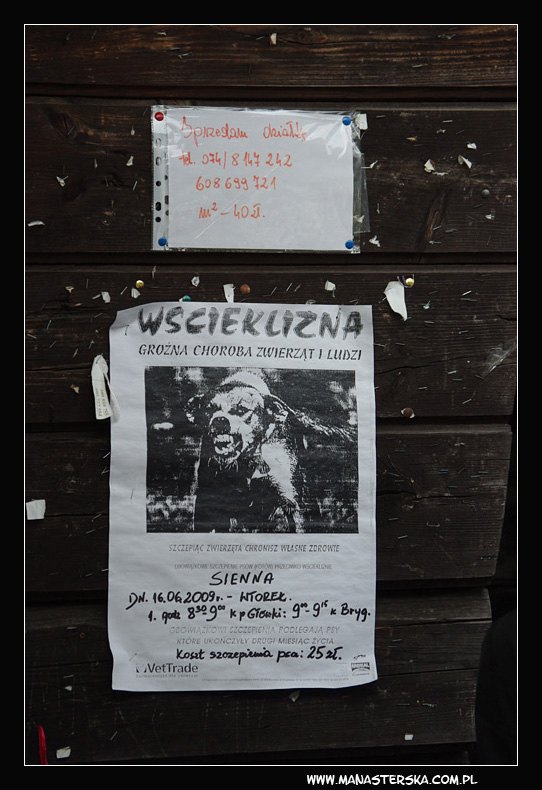 Sprzedam działkę
tel. 074/8 147 242
608 699 721
m² - 40 zł.
WŚCIEKLIZNA
GROŹNA CHOROBA ZWIERZĄT I LUDZI
SZCZEPIĄC ZWIERZĘTA CHRONISZ WŁASNE ZDROWIE
OBOWIĄZKOWE SZCZEPIENIE PSÓW PRZECIWKO WŚCIEKLIŹNIE
SIENNA
DN. 16.06.2009r. - WTOREK.
1. godz 8³⁰ 9⁰⁰ k p 9⁰⁰-9¹⁵ k Bryg.
OBOWIĄZKOWI SZCZEPIENIA PODLEGAJĄ PSY
KTÓRE UKOŃCZYŁY DRUGI MIESIĄC ŻYCIA
Koszt szczepienia psa: 25 zł.
VetTrade
WWW.MANASTERSKA.COM.PL